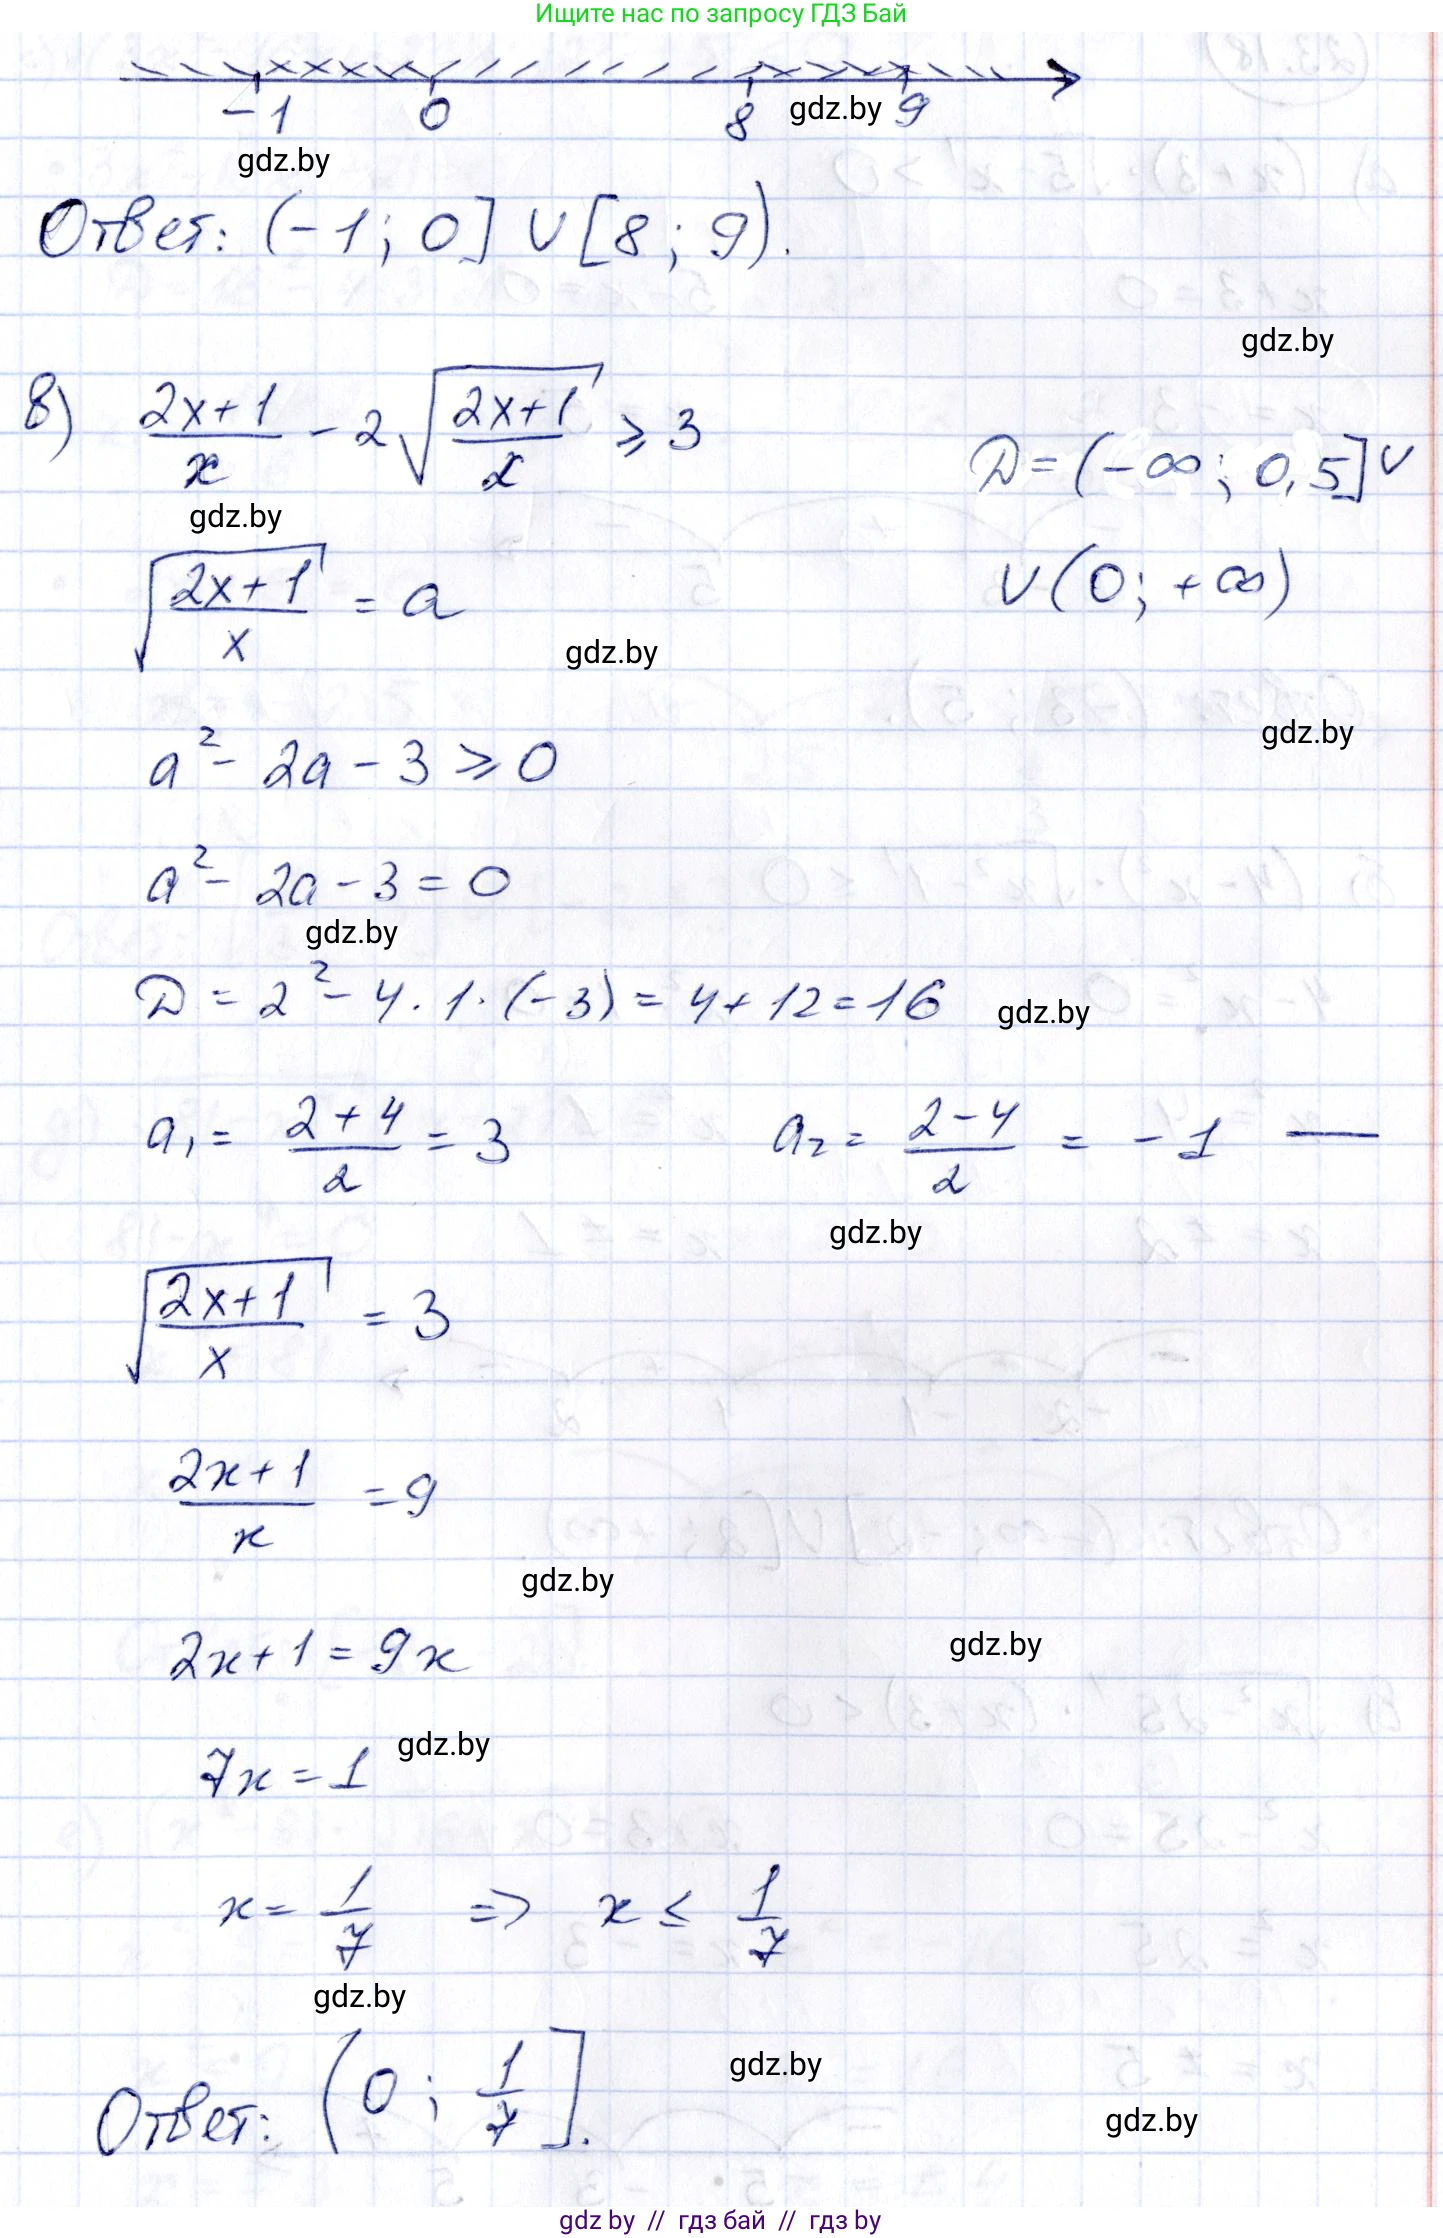 Ищите нас по запросу ГДЗ Бай
-1 0 8 gdz.by 9
gdz.by
Ответ: (-1; 0] ∪ [8; 9).
gdz.by
в) (2x+1)/x - 2√((2x+1)/x) ⩾ 3
D = (-∞; 0,5] ∪
gdz.by
∪ (0; +∞)
√((2x+1)/x) = a
gdz.by
gdz.by
a² - 2a - 3 ⩾ 0
a² - 2a - 3 = 0
gdz.by
D = 2² - 4 · 1 · (-3) = 4 + 12 = 16 gdz.by
a₁ = (2+4)/2 = 3 a₂ = (2-4)/2 = -1 —
gdz.by
√((2x+1)/x) = 3
(2x+1)/x = 9
gdz.by
2x+1 = 9x gdz.by
gdz.by
7x = 1
x = 1/7 => x ≤ 1/7
gdz.by
Ответ: (0; 1/7].
gdz.by
gdz.by
gdz by // гдз бай // гдз by